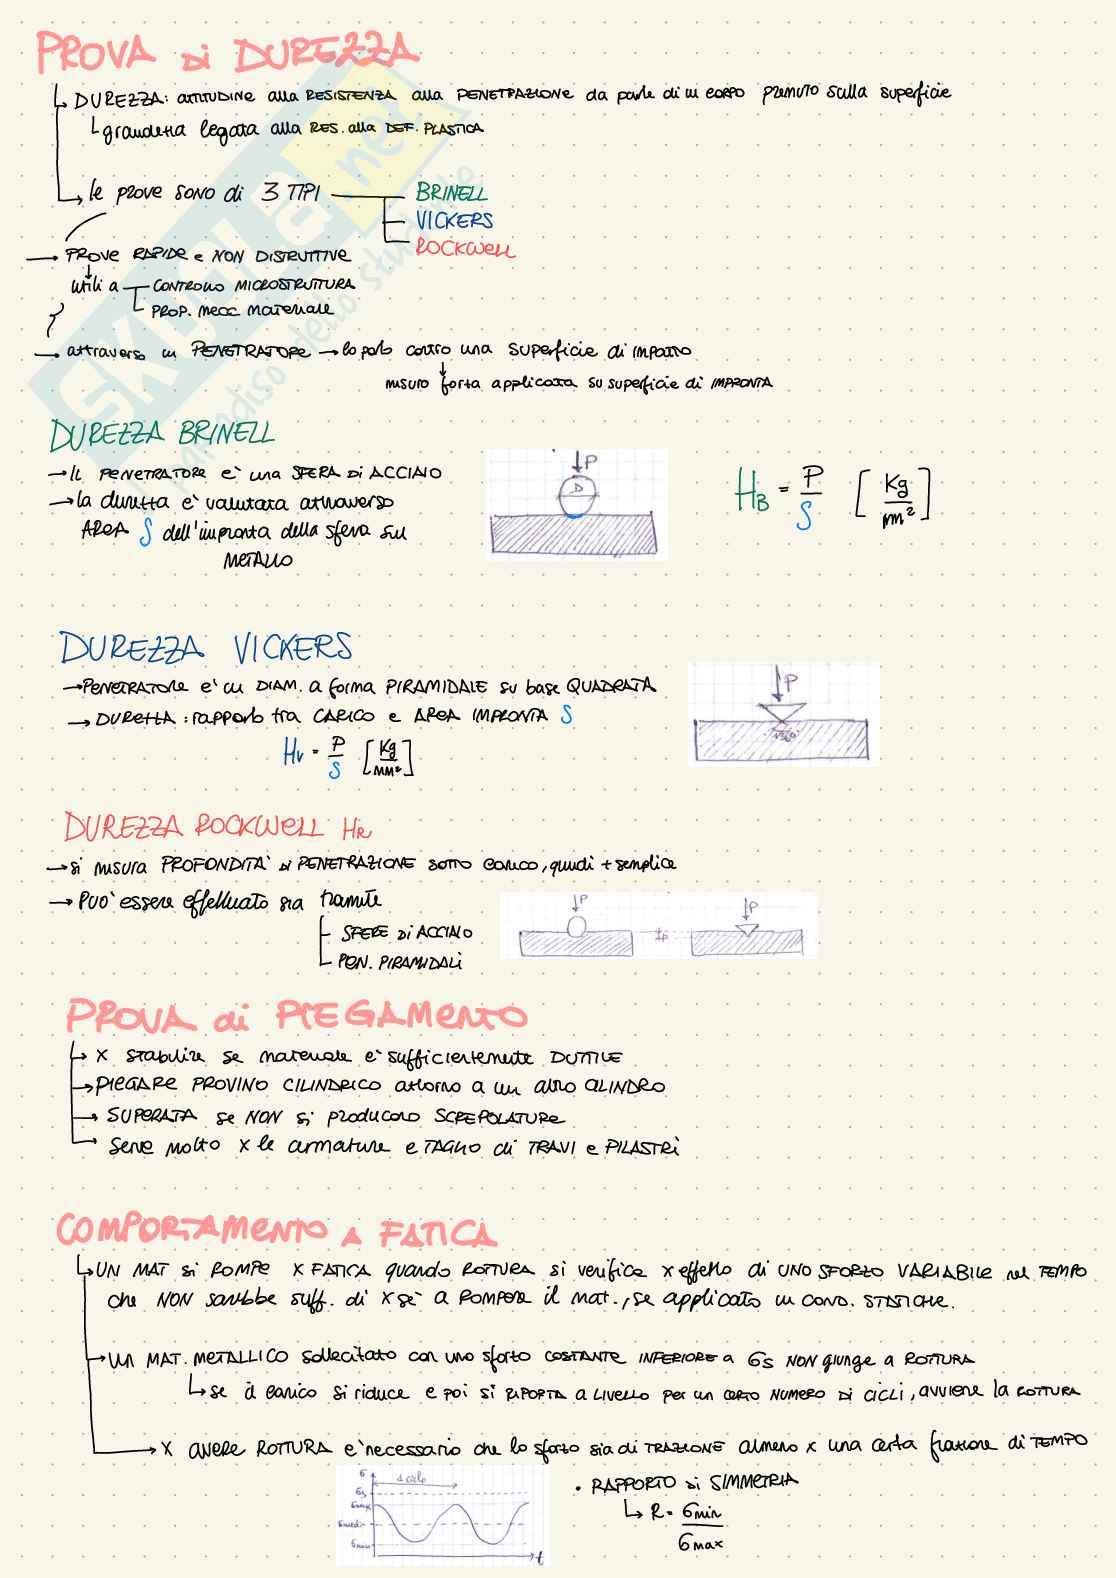 PROVA di DUREZZA
DUREZZA: attitudine alla RESISTENZA alla PENETRAZIONE da parte di un corpo premuto sulla superficie
grandezza legata alla RES. alla DEF. PLASTICA
le prove sono di 3 TIPI
BRINELL
VICKERS
ROCKWELL
PROVE RAPIDE e NON DISTRUTTIVE
utili a CONTROLLO MICROSTRUTTURA
PROP. MECC. MATERIALE
attraverso un PENETRATORE → lo porto contro una superficie di impatto
misuro forza applicata su superficie di IMPRONTA
DUREZZA BRINELL
→ IL PENETRATORE e' una SFERA DI ACCIAIO
→ la durezza e' valutata attraverso
AREA S dell'impronta della sfera sul
METALLO
P
D
HB = P/S [Kg/mm²]
DUREZZA VICKERS
→ PENETRATORE e' un DIAM. a forma PIRAMIDALE su base QUADRATA
→ DUREZZA: rapporto tra CARICO e AREA IMPRONTA S
P
136°
Hv = P/S [Kg/mm²]
DUREZZA ROCKWELL HR
→ si misura PROFONDITA' di PENETRAZIONE sotto carico, quindi + semplice
→ PUO' essere effettuato sia tramite
SFERE DI ACCIAIO
PEN. PIRAMIDALI
P
P
PROVA di PIEGAMENTO
x stabilire se materiale e' sufficientemente DUTTILE
PIEGARE PROVINO CILINDRICO attorno a un altro CILINDRO
SUPERATA se NON si producono SCREPOLATURE
serve molto x le armature e TAGLIO di TRAVI e PILASTRI
COMPORTAMENTO A FATICA
UN MAT si ROMPE x FATICA quando ROTTURA si verifica x effetto di UNO SFORZO VARIABILE nel TEMPO
che NON sarebbe suff. di x sè a ROMPERE il mat., se applicato in COND. STATICHE.
UN MAT. METALLICO sollecitato con uno sforzo COSTANTE INFERIORE a σs NON giunge a ROTTURA
se il carico si riduce e poi si RIPORTA A LIVELLO per un certo NUMERO DI CICLI, avviene la ROTTURA
x avere ROTTURA e' necessario che lo sforzo sia di TRAZIONE almeno x una certa frazione di TEMPO
σ
1 ciclo
σs
σmax
σmedio
σmin
t
• RAPPORTO di SIMMETRIA
R = σmin/σmax
SKUOLA.net